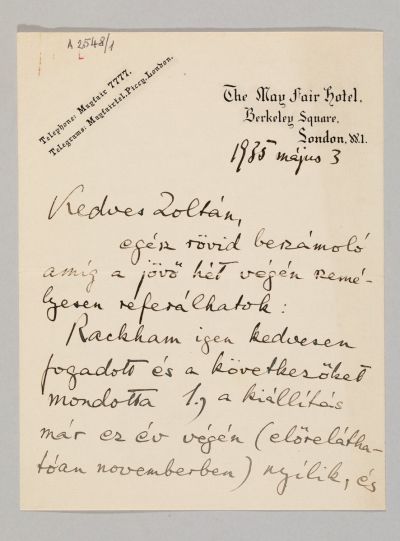 A 2548/1
Telephone: Mayfair 7777.
Telegrams: Mayfairtel, Piccy, London.
The May Fair Hotel,
Berkeley Square,
London, W.1.
1935 május 3
Kedves Zoltán,
egész rövid beszámoló
amíg a jövő hét végén szemé-
lyesen referálhatok:
Rackham igen kedvesen
fogadott és a következőket
mondotta 1., a kiállítás
már ez év végén (előrelátha-
tóan novemberben) nyílik, és